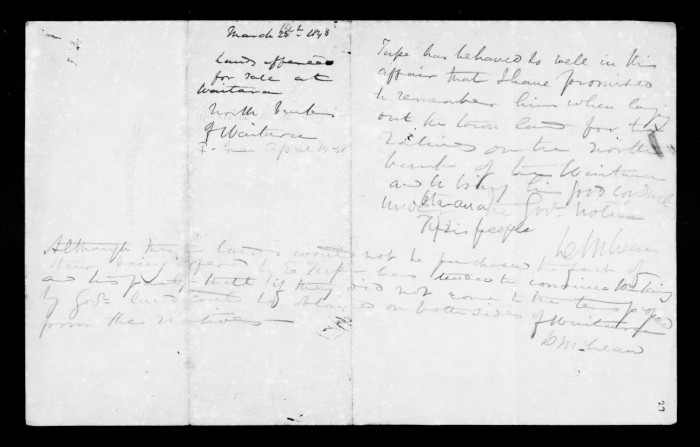 March 28th 1848
Lands offered
for sale at
Waitara
North bank
of Waitara
April
Tupe has behaved so well in this
affair that I have promised
to remember him when laying
out the town land for the
Natives on the North
bank of the Waitara
and to bring his good conduct
under the Govt notice
Tupis people
McLean
Although these lands could not be purchased the fact of
their being offered by E Tupe has
and his party that if they did not come to the terms proposed
by Govt land could be obtained on both sides of Waitara
from the natives
D McLean
27